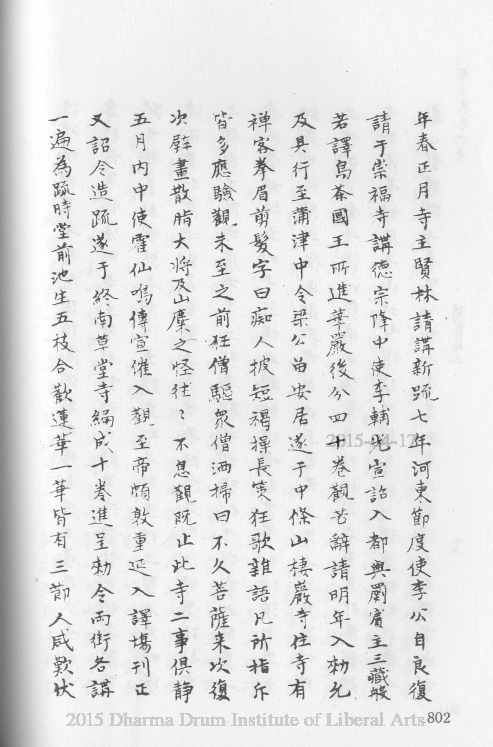 年春正月寺主賢林請講新疏七年河東節度使李公自良復
請于崇福寺講德宗降中使李輔光宣詔入都與罽賓三藏般
若譯烏荼國王所進華嚴後分四十卷觀苦辭請明年入勑允
及具行至蒲津中令梁公留安居遂于中條山棲巖寺住寺有
禅客拳眉剪髮字曰痴人披短褐操長筴狂歌雜語凡所指斥
皆多應驗觀未至之前狂僧驅衆僧洒掃曰不久菩薩来次復
次壁畫散脂大将及山麋之怪往〻不息觀既止此寺二事俱静
五月内中使霍仙鳴傳宣催入觀至帝頗敦重延入譯場刊正
又詔令造疏遂于終南草堂寺編成十卷進呈勑令両街各講
一遍為疏時堂前池生五枝合歡蓮華一華皆有三節人咸歎伏
2015-04-17
2015 Dharma Drum Institute of Liberal Arts
802